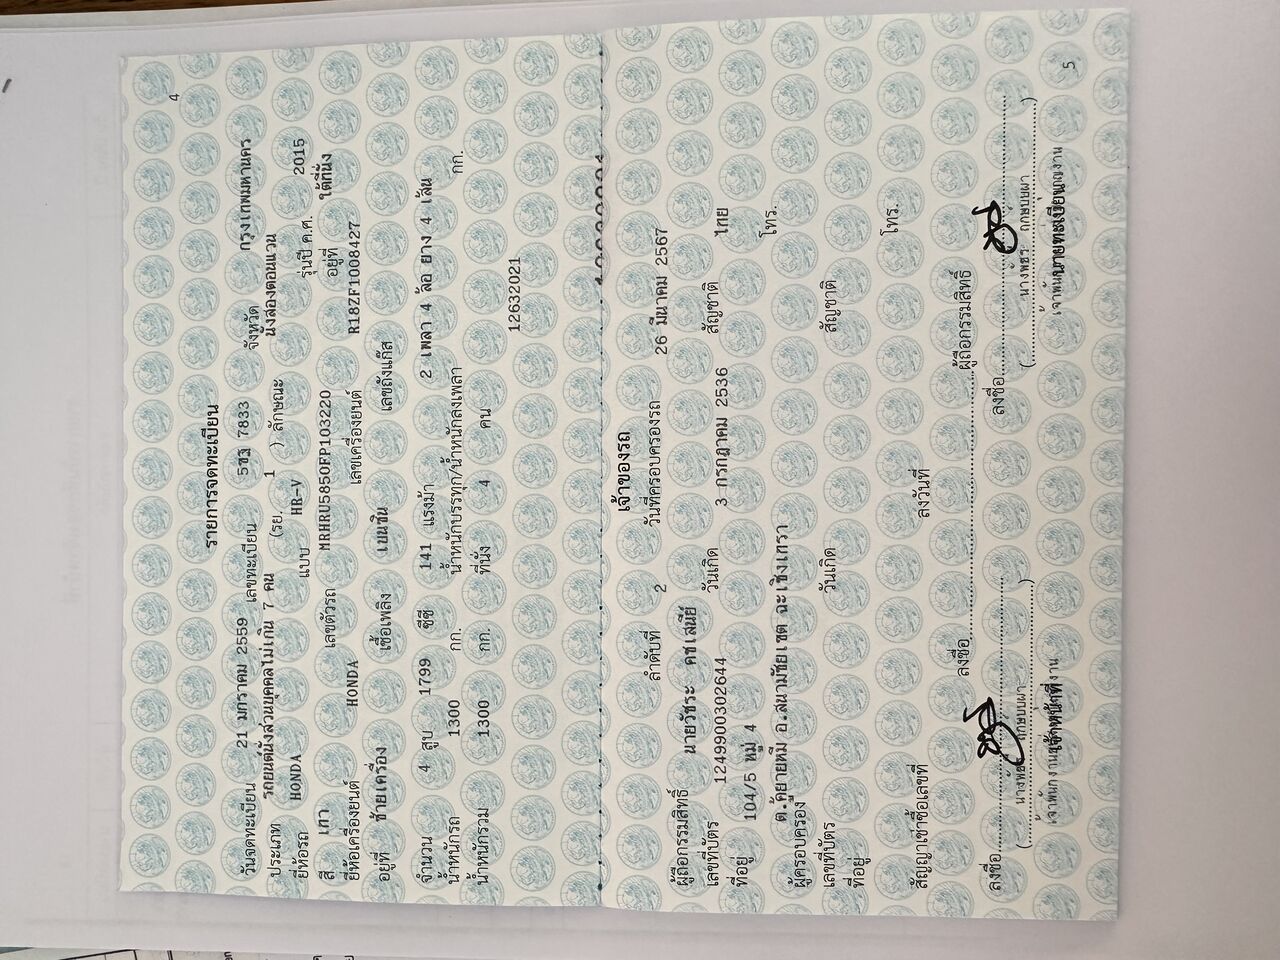 4
รายการจดทะเบียน
วันจดทะเบียน 21 มกราคม 2559 เลขทะเบียน 5ขฎ 7833 จังหวัด กรุงเทพมหานคร
ประเภท รถยนต์นั่งส่วนบุคคลไม่เกิน 7 คน (รย. 1 ) ลักษณะ นั่งสองตอนแวน
ยี่ห้อรถ HONDA แบบ HR-V รุ่นปี ค.ศ. 2015
สี เทา เลขตัวรถ MRHRU5850FP103220 อยู่ที่ ใต้ที่นั่ง
ยี่ห้อเครื่องยนต์ HONDA เลขเครื่องยนต์ R18ZF1008427
อยู่ที่ ซ้ายเครื่อง เชื้อเพลิง เบนซิน เลขถังแก๊ส
จำนวน 4 สูบ 1799 ซีซี 141 แรงม้า 2 เพลา 4 ล้อ ยาง 4 เส้น
น้ำหนักรถ 1300 กก. น้ำหนักบรรทุก/น้ำหนักลงเพลา กก.
น้ำหนักรวม 1300 กก. ที่นั่ง 4 คน
12632021
เจ้าของรถ
ลำดับที่ 2 วันที่ครอบครองรถ 26 มีนาคม 2567
ผู้ถือกรรมสิทธิ์ นายวัชระ คชเสนีย์
เลขที่บัตร 1249900302644 วันเกิด 3 กรกฎาคม 2536 สัญชาติ ไทย
ที่อยู่ 104/5 หมู่ 4 โทร.
ต.คู้ยายหมี อ.สนามชัยเขต ฉะเชิงเทรา
ผู้ครอบครอง
เลขที่บัตร วันเกิด สัญชาติ
ที่อยู่ โทร.
สัญญาเช่าซื้อเลขที่ ลงวันที่ ผู้ถือกรรมสิทธิ์
ลงชื่อ ลงชื่อ
ลงชื่อ
เจ้าหน้าที่ นายทะเบียน
5